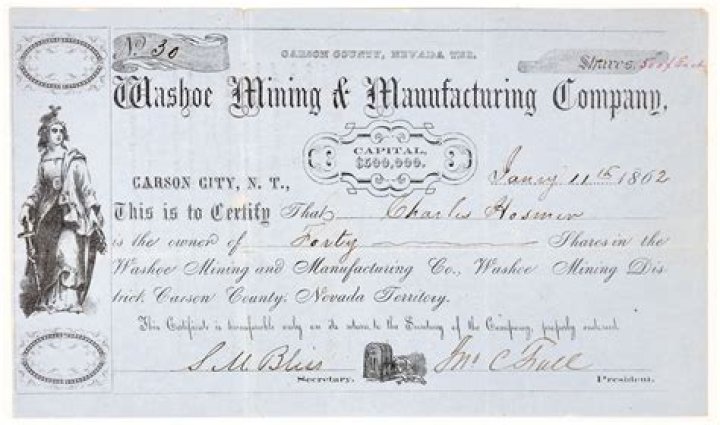 No. 30
CARSON COUNTY, NEVADA TER.
Shares, 500 $ Each
Washoe Mining & Manufacturing Company,
CAPITAL,
$500,000.
CARSON CITY, N. T., Jany 11th 1862
This is to Certify That Charles Hosmer
is the owner of Forty Shares in the
Washoe Mining and Manufacturing Co., Washoe Mining Dis-
trict, Carson County, Nevada Territory.
This Certificate is transferable only on its return to the Secretary of the Company, properly endorsed.
S. M. Bliss Jno C Fall
Secretary. President.